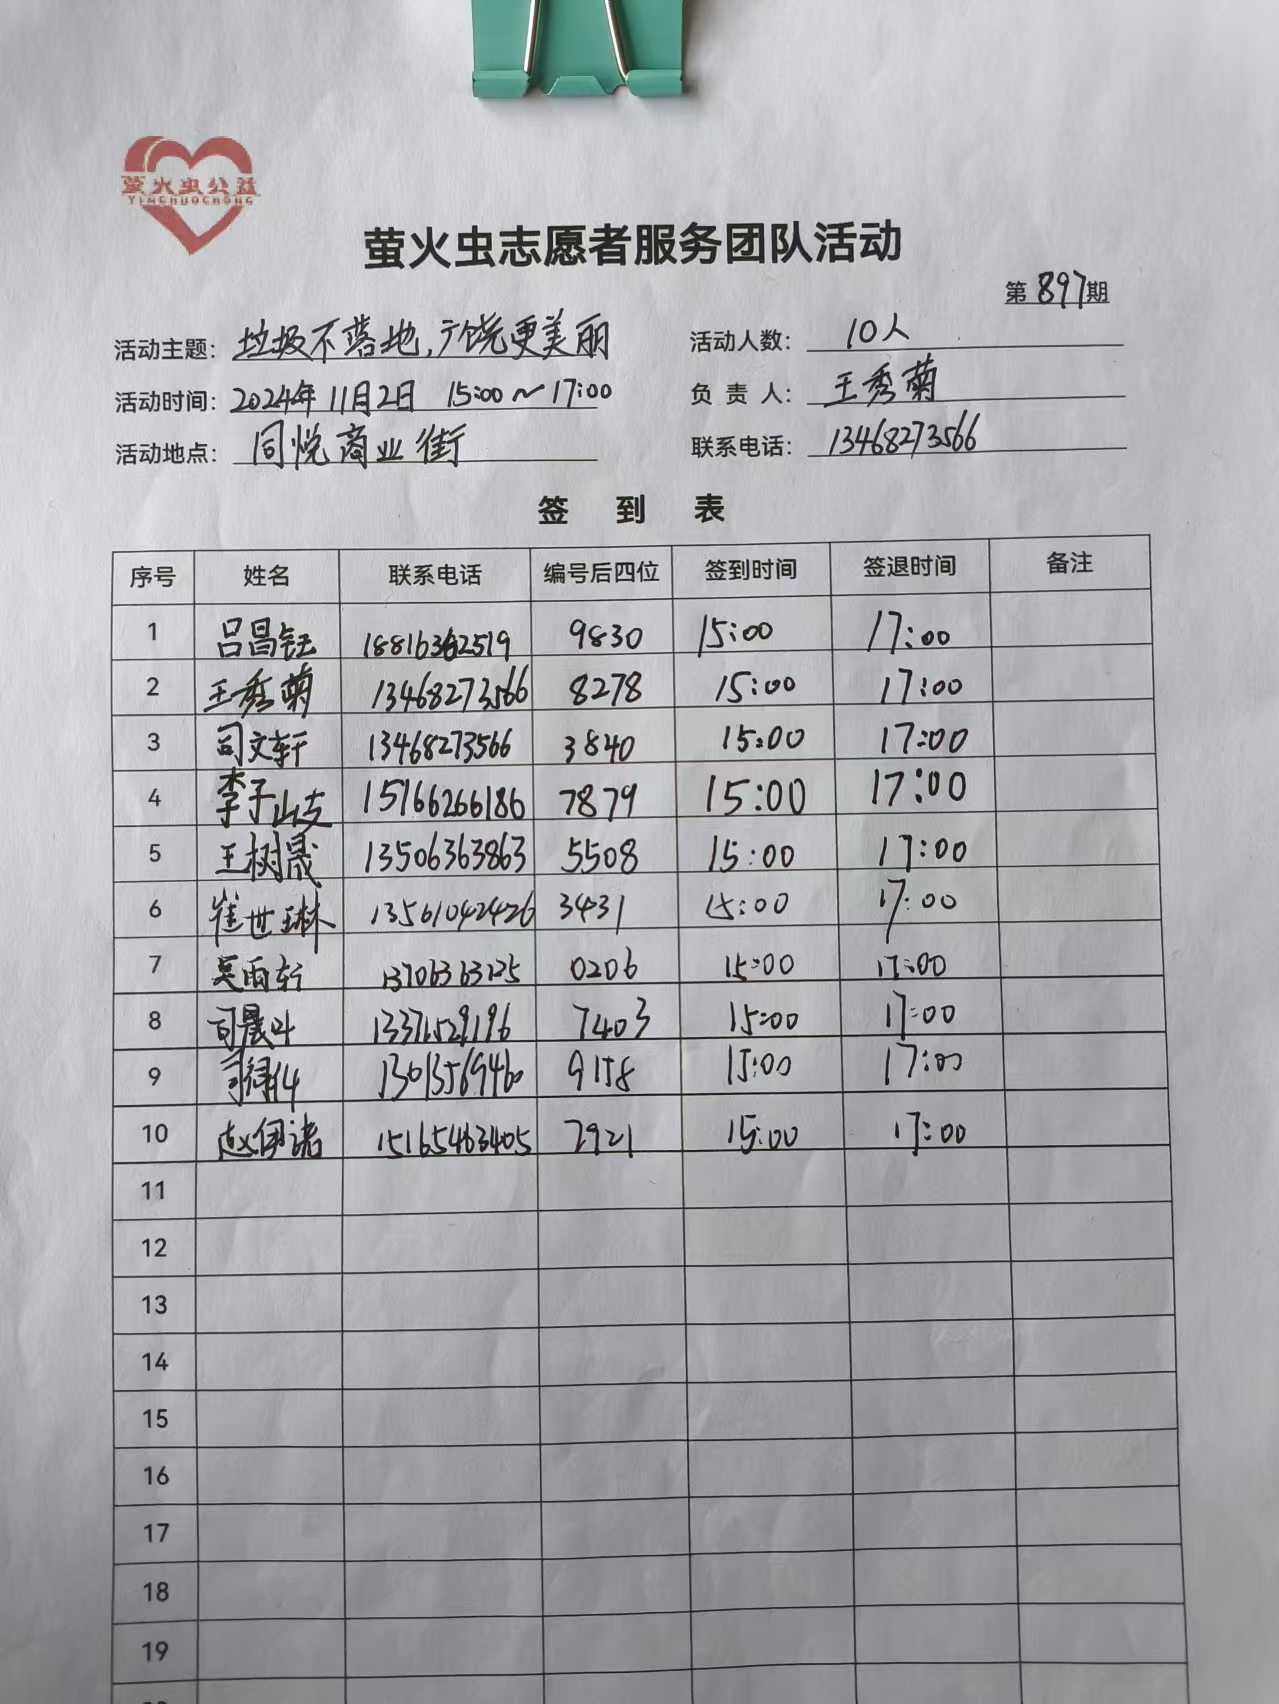 萤火虫公益
YINGHUOCHONG
萤火虫志愿者服务团队活动
第897期
活动主题: 垃圾不落地,广饶更美丽 活动人数: 10人
活动时间: 2024年11月2日 15:00～17:00 负责人: 王秀菊
活动地点: 同悦商业街 联系电话: 13468273566
签到表
序号 姓名 联系电话 编号后四位 签到时间 签退时间 备注
1 吕昌钰 9830 15:00 17:00
2 王秀菊 13468273566 8278 15:00 17:00
3 司文轩 13468273566 3840 15:00 17:00
4 李子 15166266186 7879 15:00 17:00
5 王树晟 13506363863 5508 15:00 17:00
6 崔世琳 13561042426 3431 15:00 17:00
7 吴雨轩 13706363125 0206 15:00 17:00
8 司晨 13371529196 7403 15:00 17:00
9 9158 15:00 17:00
10 赵伊诺 15165463405 7921 15:00 17:00
11
12
13
14
15
16
17
18
19